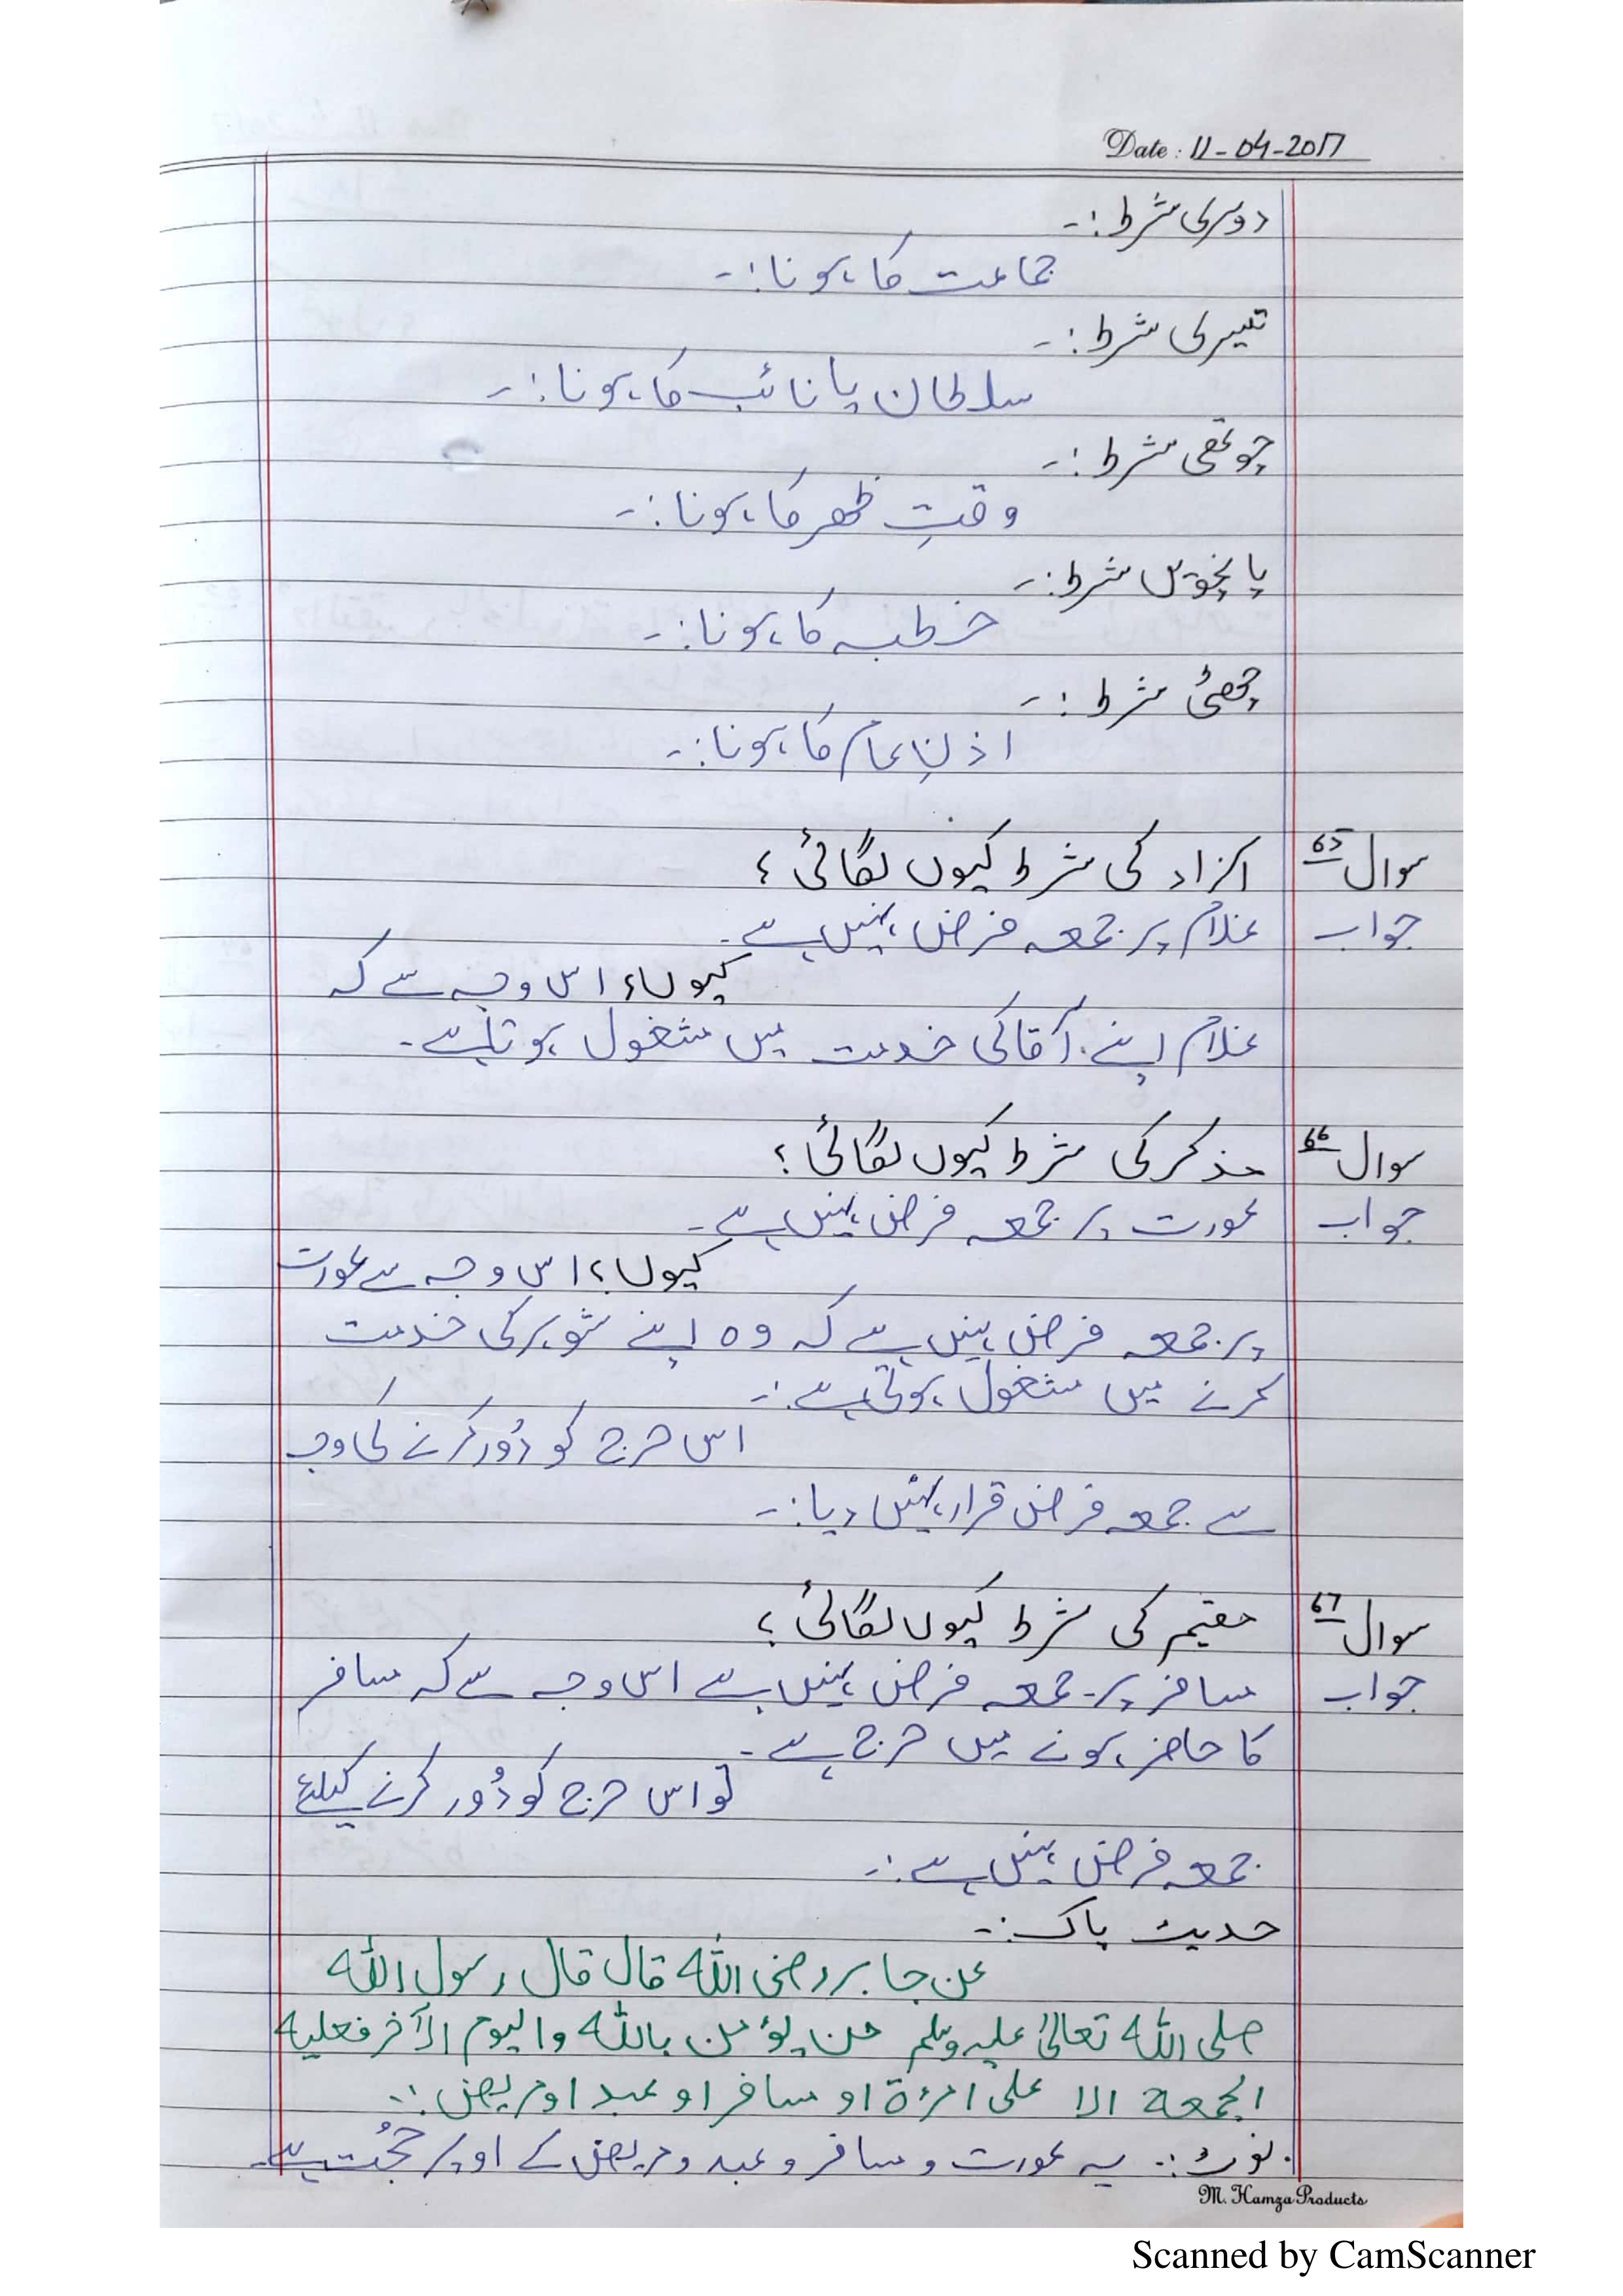 Date : 11-04-2017
دوسری شرط :-
جماعت کا ہونا :-
تیسری شرط :-
سلطان یا نائب کا ہونا :-
چوتھی شرط :-
وقتِ ظھر کا ہونا :-
پانچویں شرط :-
خطبہ کا ہونا :-
چھٹی شرط :-
اذنِ عام کا ہونا :-
سوال 65 آزاد کی شرط کیوں لگائی ؟
جواب غلام پر جمعہ فرض نہیں ہے۔
کیوں؟ اس وجہ سے کہ
غلام اپنے آقا کی خدمت میں مشغول ہوتا ہے۔
سوال 66 مذکر کی شرط کیوں لگائی ؟
جواب عورت پر جمعہ فرض نہیں ہے۔
کیوں؟ اس وجہ سے عورت
پر جمعہ فرض نہیں ہے کہ وہ اپنے شوہر کی خدمت
کرنے میں مشغول ہوتی ہے :-
اس حرج کو دُور کرنے کی وجہ
سے جمعہ فرض قرار نہیں دیا :-
سوال 67 مقیم کی شرط کیوں لگائی ؟
جواب مسافر پر جمعہ فرض نہیں ہے اس وجہ سے کہ مسافر
کا حاضر ہونے میں حرج ہے۔
تو اس حرج کو دُور کرنے کیلئے
جمعہ فرض نہیں ہے :-
حدیث پاک :-
عن جابر رضی اللہ قال قال رسول اللہ
صلی اللہ تعالیٰ علیہ وسلم من یؤمن باللہ والیوم الآخر فعلیہ
الجمعة الا علی امرٔة او مسافر او عبد او مریض :-
نوٹ :- یہ عورت و مسافر و عبد و مریض کے اوپر حجُت ہے۔
M. Hamza Products
Scanned by CamScanner